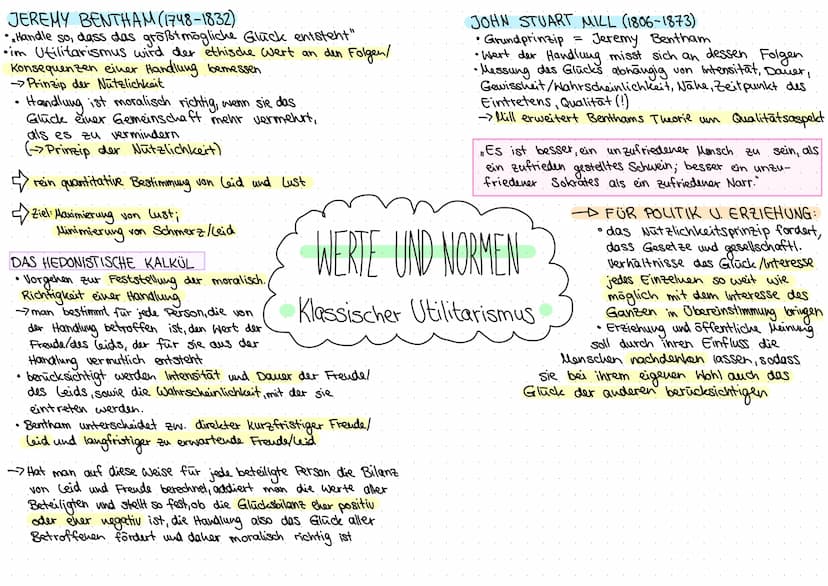 JEREMY BENTHAM (1748-1832)
• „Handle so, dass das größtmögliche Glück entsteht"
• im Utilitarismus wird der ethische Wert an den Folgen/
Konsequenzen einer Handlung bemessen
→ Prinzip der Nützlichkeit
• Handlung ist moralisch richtig, wenn sie das
Glück einer Gemeinschaft mehr vermehrt,
als es zu vermindern
(→ Prinzip der Nützlichkeit)
⇨ rein quantitative Bestimmung von Leid und Lust
⇨ Ziel: Maximierung von Lust;
Minimierung von Schmerz/Leid
DAS HEDONISTISCHE KALKÜL
• Vorgehen zur Feststellung der moralisch.
Richtigkeit einer Handlung
→ man bestimmt für jede Person, die von
der Handlung betroffen ist, den Wert der
Freude/des Leids, der für sie aus der
Handlung vermutlich entsteht
• berücksichtigt werden Intensität und Dauer der Freude/
des Leids, sowie die Wahrscheinlichkeit, mit der sie
eintreten werden.
• Bentham unterscheidet zw. direkter kurzfristiger Freude/
Leid und langfristiger zu erwartende Freude/Leid
→ Hat man auf diese Weise für jede beteiligte Person die Bilanz
von Leid und Freude berechnet, addiert man die Werte aller
Beteiligten und stellt so fest, ob die Glücksbilanz eher positiv
oder eher negativ ist, die Handlung also das Glück aller
Betroffenen fördert und daher moralisch richtig ist
WERTE UND NORMEN
Klassischer Utilitarismus
JOHN STUART MILL (1806-1873)
• Grundprinzip = Jeremy Bentham
• Wert der Handlung misst sich an dessen Folgen
• Messung des Glücks abhängig von Intensität, Dauer,
Gewissheit/Wahrscheinlichkeit, Nähe, Zeitpunkt des
Eintretens, Qualität (!)
→ Mill erweitert Benthams Theorie um Qualitätsaspekt
„Es ist besser, ein unzufriedener Mensch zu sein, als
ein zufrieden gestelltes Schwein; besser ein unzu-
friedener Sokrates als ein zufriedener Narr."
→ FÜR POLITIK U. ERZIEHUNG:
• das Nützlichkeitsprinzip fordert,
dass Gesetze und gesellschaftl.
Verhältnisse das Glück/Interesse
jedes Einzelnen so weit wie
möglich mit dem Interesse des
Ganzen in Übereinstimmung bringen
• Erziehung und öffentliche Meinung
soll durch ihren Einfluss die
Menschen nachdenken lassen, sodass
sie bei ihrem eigenen Wohl auch das
Glück der anderen berücksichtigen